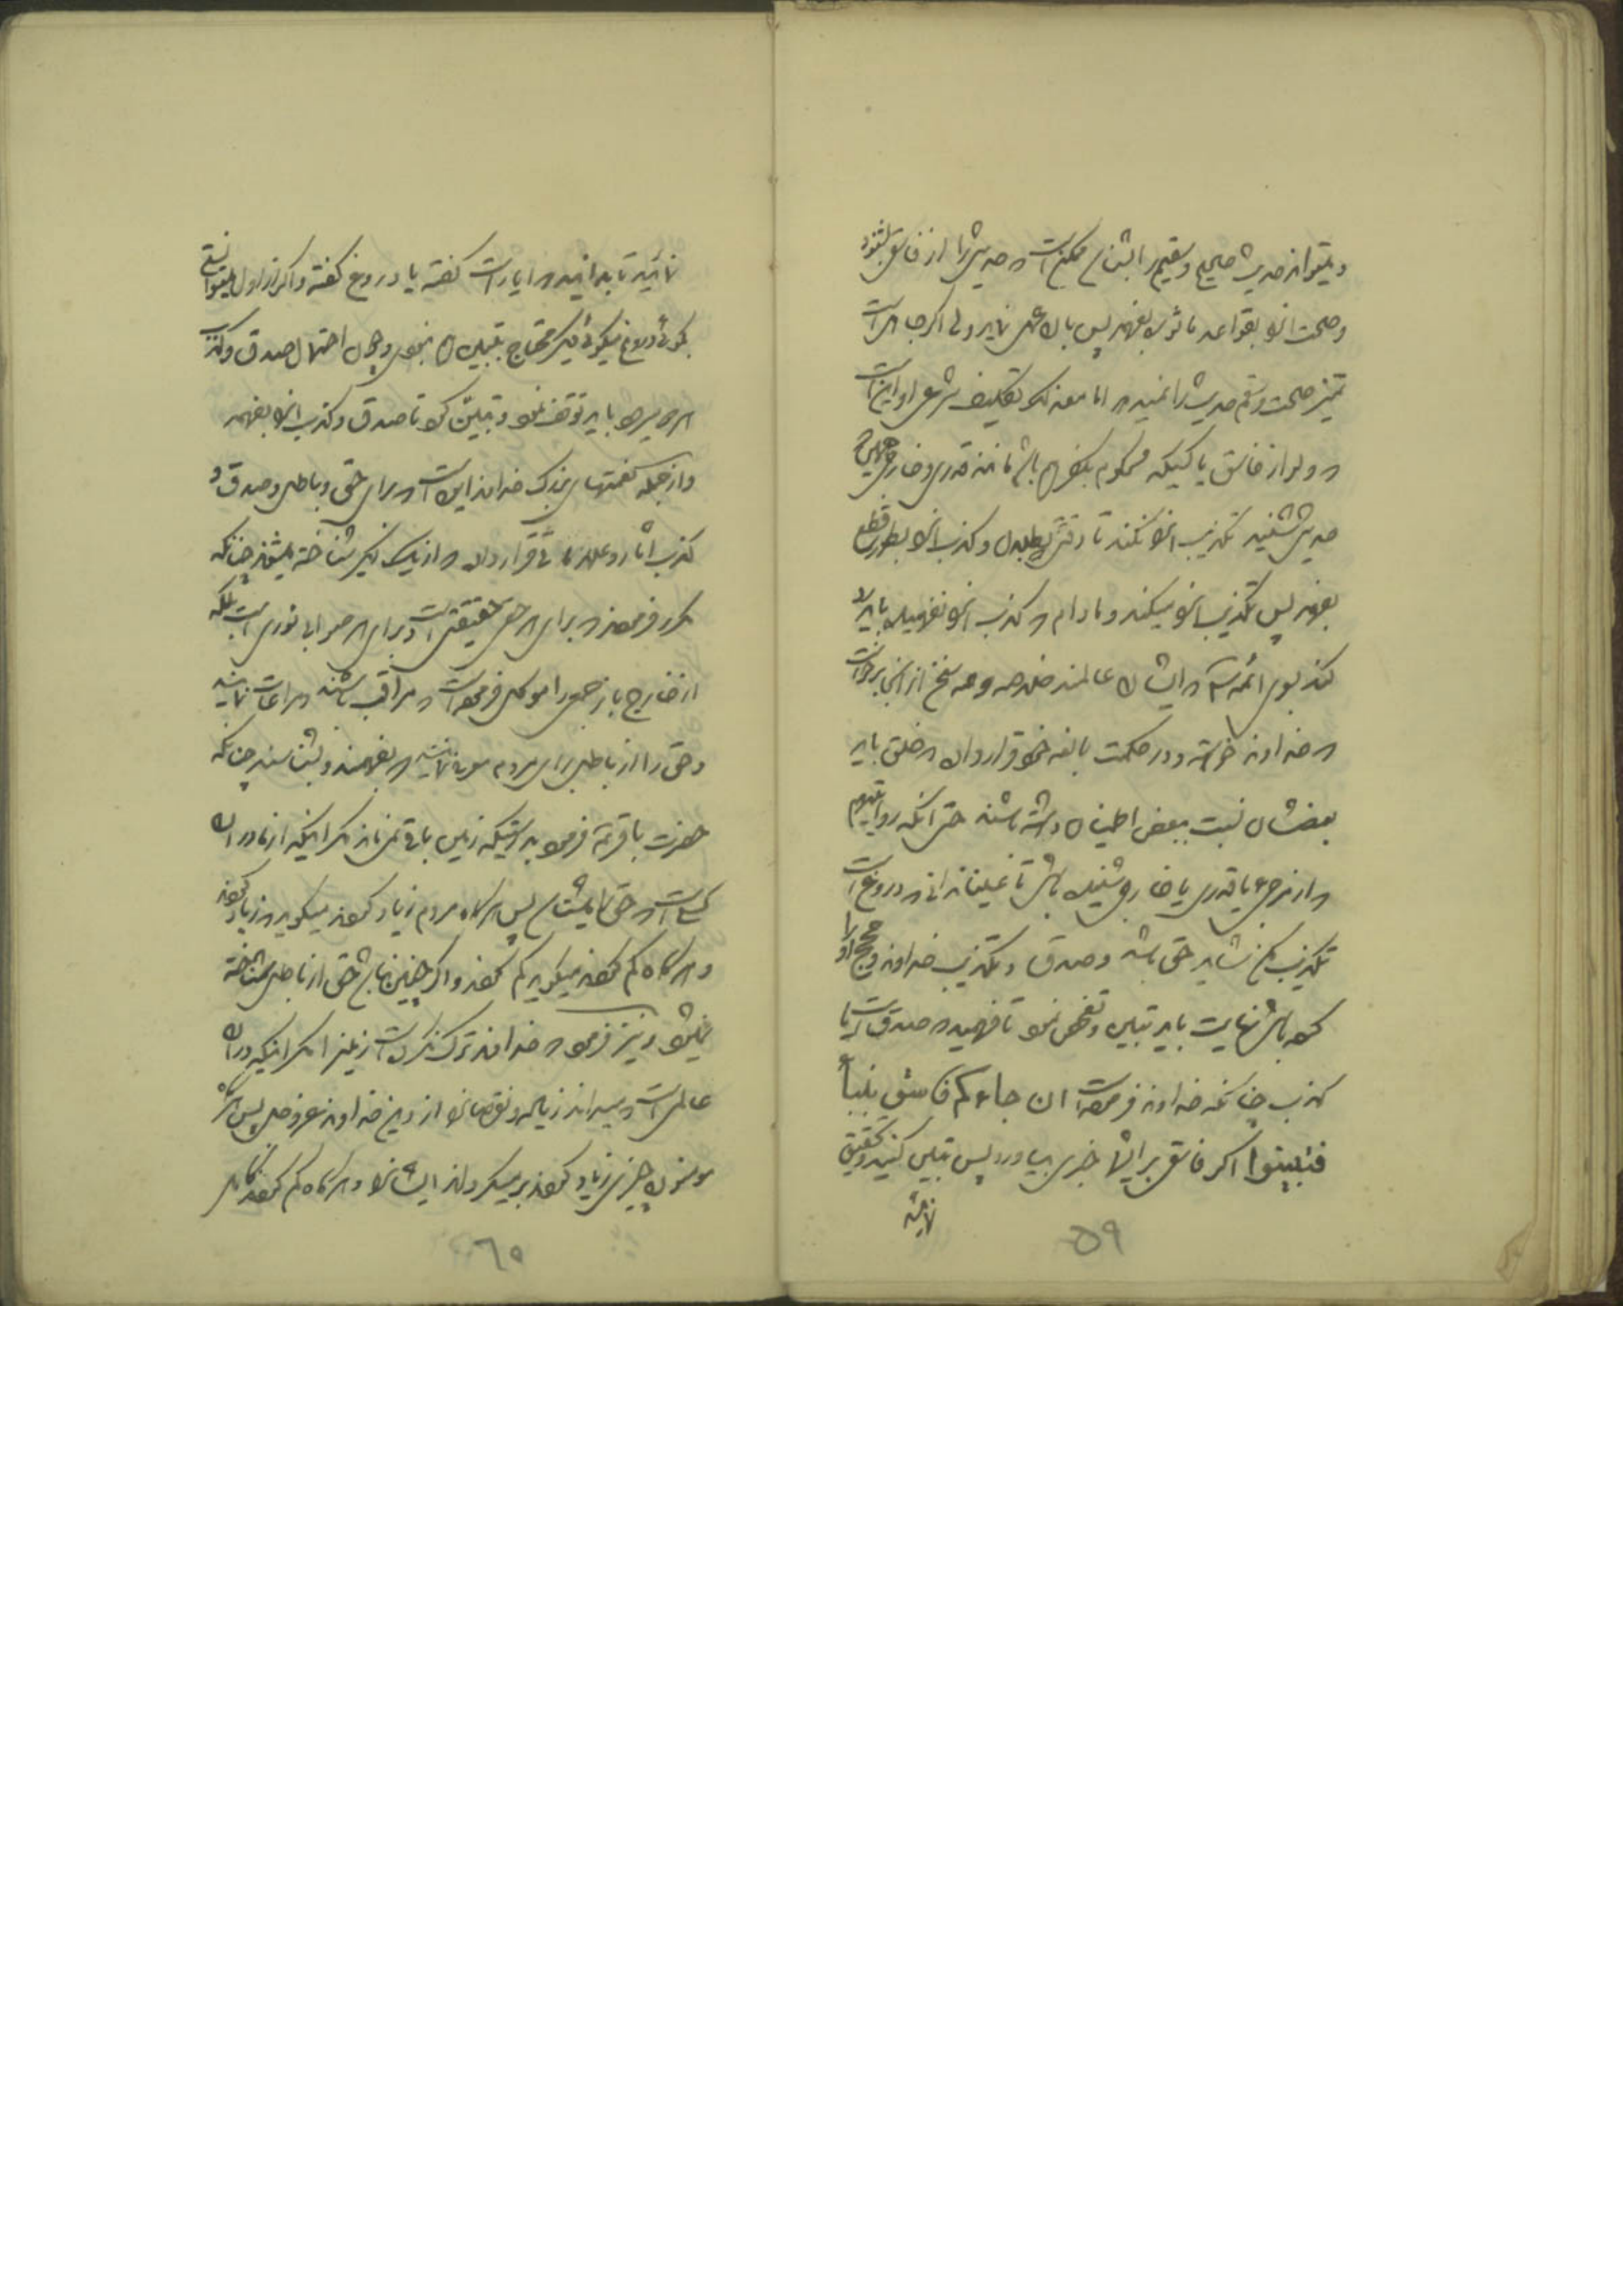 و میتواند حدیث صحیح و سقیم را بشناسد ممکن است که حدیثی را از فاسق بشنود
و صحت انرا بقواعد ماثوره بفهمد پس بان عمل نماید ولی اگر جاهل است
تمیز صحت و سقم حدیث را نمیدهد اما معذلک تکلیف شرعی او این است
که ولو از فاسق یا کسیکه محکوم بکفر هم باشد مانند قدری و خارجی
حدیثی شنید تکذیب انرا نکند تا وقتی بطلان و کذب انرا بطور قطع
بفهمد پس تکذیب انرا میکند و مادام که کذب انرا نفهمیده باید رد
کند بسوی ائمه که ایشان عالمند
که خداوند خواسته و در حکمت بالغه خود قرار داده که خلق باید
بعضشان نسبت ببعض اطمینان داشته باشند حتی انکه روایتی هم
که از مرجئه یا قدری یا خارجی شنیده باشی تا عینا ندانی که دروغ است
تکذیب مکن شاید حق باشد و صدق و تکذیب خداوند و حجج او را
کرده باشی نهایت باید تبین و تفحص نمود تا فهمید که صدق است یا
کذب چنانکه خداوند فرموده است ان جاءکم فاسق بنبأ
فتبینوا اگر فاسقی برای شما خبری بیاورد پس تبیین کنید و تحقیق
نمائید
۵۹
نمائید تا بدانید که ایا راست گفته یا دروغ گفته و اگر از اول میتوانستی
بگوئی دروغ میگوئی دیگر محتاج بتبین هم نبودی و چون احتمال صدق و کذب
هر دو میرود باید توقف نمود و تبین کرد تا صدق و کذب انرا بفهمد
و از جمله نعمتهای بزرگ خداوند این است که برای حق و باطل و صدق و
کذب اثار و علاماتی قرار داده که از یکدیگر شناخته میشوند چنانکه
مکرر فرمودند که برای هر حقی حقیقتی است و برای هر صوابی نوری است بلکه
از خارج باز جمعی را موکل فرموده است که مراقب باشند و مراعات نمایند
و حق را از باطل برای مردم معرفی نمایند که بفهمند و بشناسند چنانکه
حضرت باقر ع فرمود بدرستیکه زمین باقی نمی ماند مگر اینکه از ما در ان
کسی است که حق را میشناسد پس هرگاه مردم زیاد کردند میگوید که زیاد کردند
و هرگاه کم کردند میگوید کم کردند و اگر چنین نباشد حق از باطل شناخته
نمیشود و نیز فرمود که خداوند ترک نکرده است زمین را مگر اینکه در ان
عالمی است که میداند زیاده و نقصان را از دین خداوند عز و جل پس هرگاه
مومنون چیزی زیاد کردند بر میگرداند ایشان را و هرگاه کم کردند کامل
۶۰